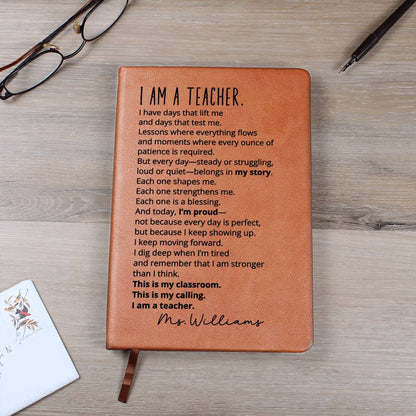 I AM A TEACHER.
I have days that lift me
and days that test me.
Lessons where everything flows
and moments where every ounce of
patience is required.
But every day—steady or struggling,
loud or quiet—belongs in my story.
Each one shapes me.
Each one strengthens me.
Each one is a blessing.
And today, I'm proud—
not because every day is perfect,
but because I keep showing up.
I keep moving forward.
I dig deep when I'm tired
and remember that I am stronger
than I think.
This is my classroom.
This is my calling.
I am a teacher.
Ms. Williams